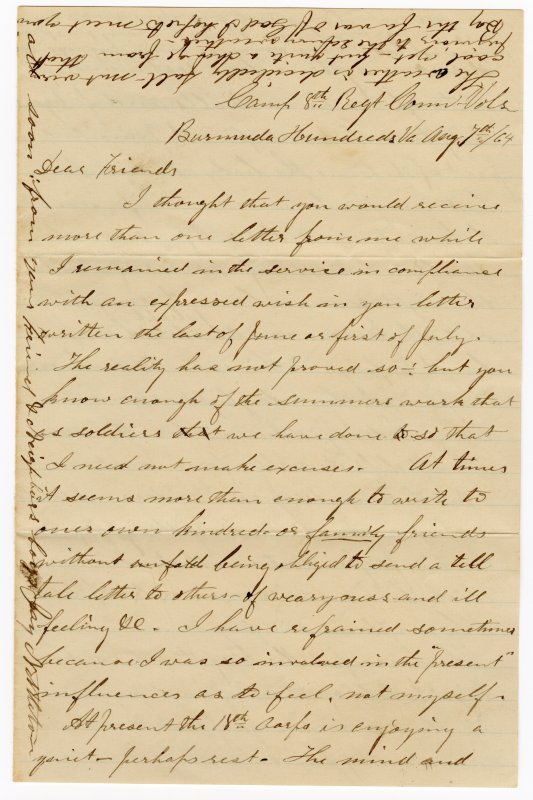 Camp 8th Regt Conn. Vols
Burmuda Hundreds Va Aug. 7th/64
Dear Friends
I thought that you would receive
more than one letter from me while
I remained in the service in compliance
with an expressed wish in you letter
written the last of June or first of July.
The reality has not proved so-! but you
know enough of the summers work that
as soldiers that we have done to so that
I need not make excuses. At times
it seems more than enough to write to
ones own kindred or family friends
without being obliged to send a tell
tale letter to others- of wearyness and ill
feeling &c. I have refrained sometimes
because I was so involved in the "present"
influences as to feel, not myself.
At present the 18th Corps is enjoying a
quiet- perhaps rest. The mind and
The weather is decidedly fall- not very
cool yet- but quite a change from that
previous to the
Day the favor of God I hope to meet you
all soon. from your friend & Neighbors boy